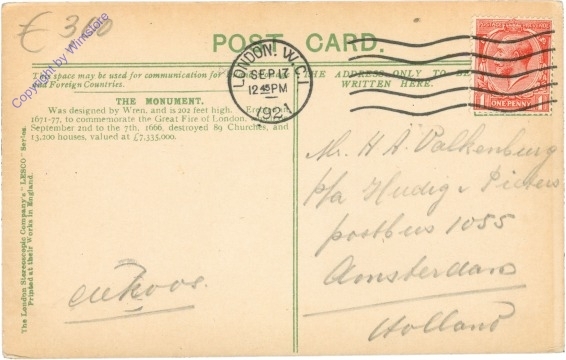 € 3,00
Copyright by Winstore
POST CARD.
This space may be used for communication for
and Foreign Countries.
THE ADDRESS ONLY TO BE
WRITTEN HERE.
LONDON. W.C.1
SEP 17
12.45PM
192
POSTAGE REVENUE
ONE PENNY
THE MONUMENT.
Was designed by Wren, and is 202 feet high.
1671-77, to commemorate the Great Fire of London.
September 2nd to the 7th, 1666, destroyed 89 Churches, and
13,200 houses, valued at £7,335,000.
The London Stereoscopic Company's "LESCO" Series.
Printed at their Works in England.
Mr. H A Valkenburg
p/a Hudig & Pieters
postbus 1055
Amsterdam
Holland